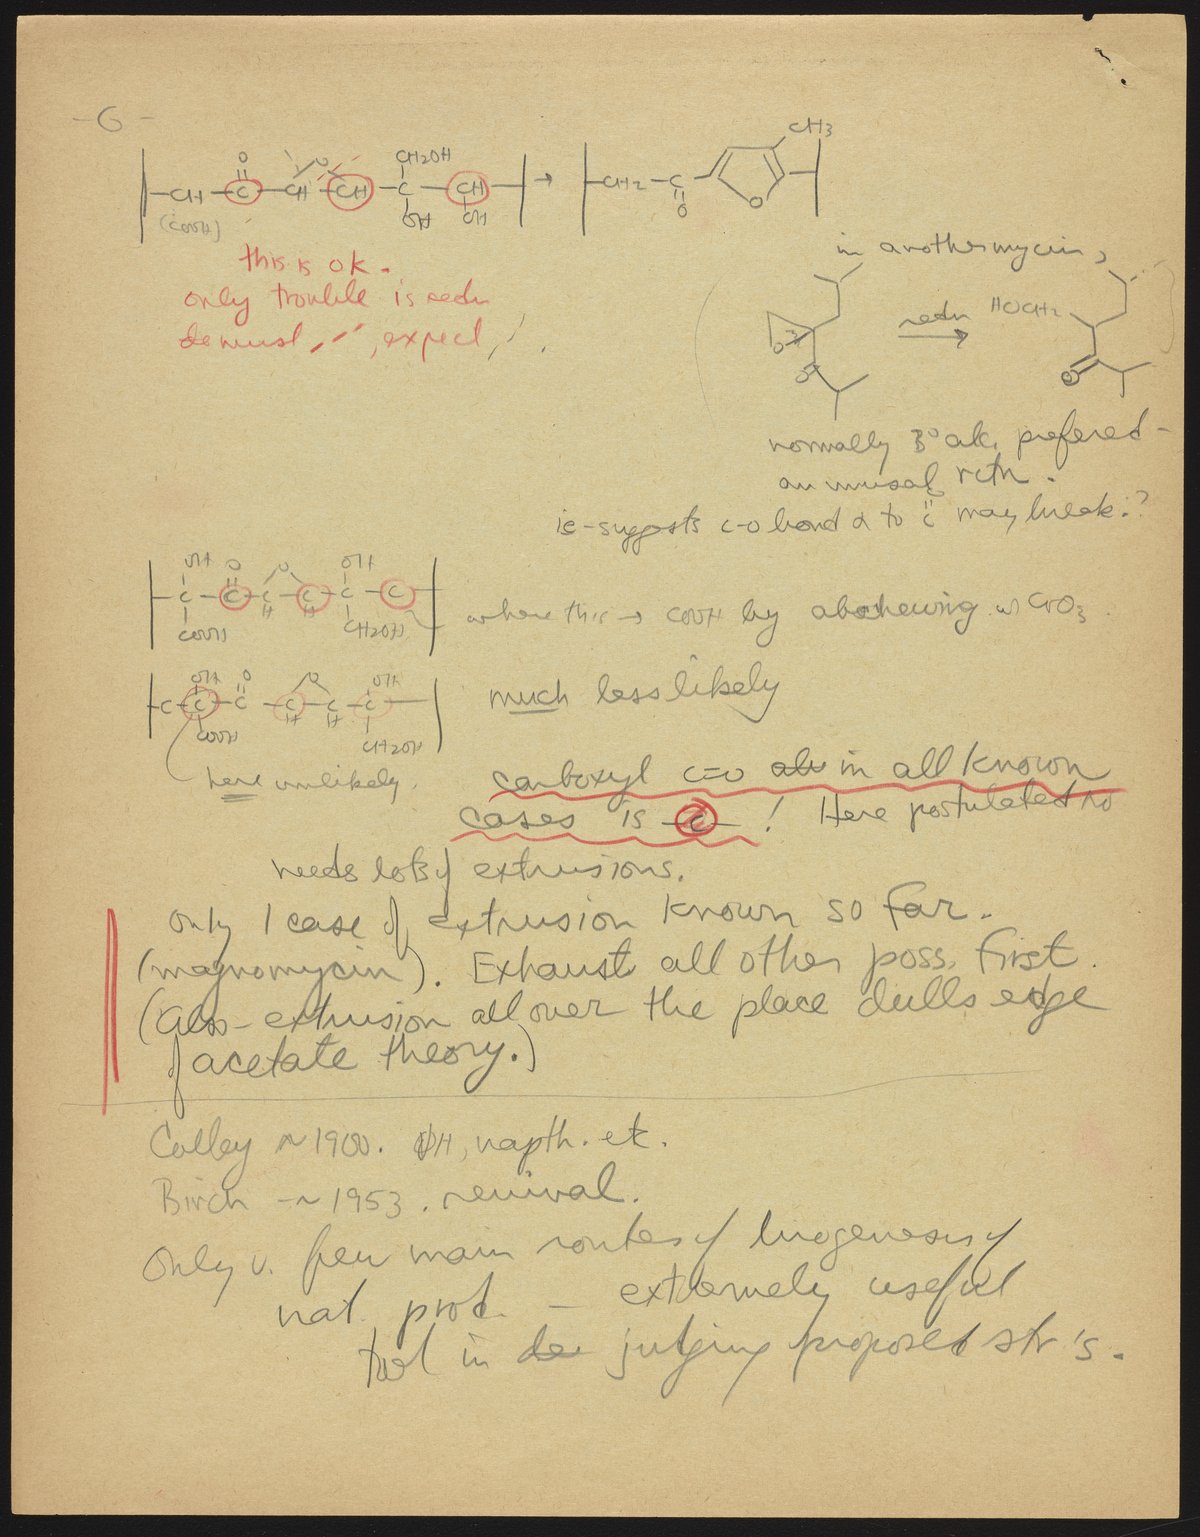 - 6 -
O O CH2OH CH3
-CH-C-CH-CH-C-CH- → -CH2-C- O
(COOH) OH OH O
this is ok.
only trouble is redn
in anothermycin,
redn HOCH2
O O
normally 3° alc. prefered -
an unusal rctn.
ie-suggests C-O bond α to C may break.?
OH O O OH
-C-C-C-C-C-C-
H H
COOH CH2OH
where this → COOH by abchewing w CrO3.
OH O O OH
C-C-C-C-C-C-
H H
COOH CH2OH
much less likely
here unlikely.
carboxyl C=O alw in all known
cases is -C- ! Here postulated no
needs lots of extrusions.
only 1 case of extrusion known so far.
(magnomycin). Exhaust all other poss. first.
(also - extrusion all over the place dulls edge
of acetate theory.)
Colley ~ 1900. ϕH, napth. etc.
Birch - ~ 1953. revival.
Only v. few main routes of biogenesis of
nat. prod. - extremely useful
tool in de judging proposed str's.